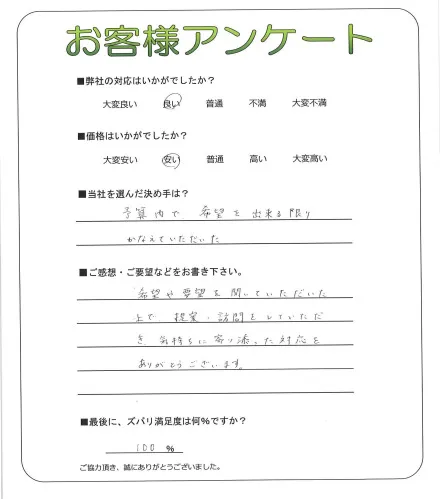 お客様アンケート
■弊社の対応はいかがでしたか?
大変良い 良い 普通 不満 大変不満
■価格はいかがでしたか?
大変安い 安い 普通 高い 大変高い
■当社を選んだ決め手は?
予算内で 希望を 出来る限り
かなえていただいた
■ご感想・ご要望などをお書き下さい。
希望や要望を聞いていただいた
上で、提案・訪問をしていただ
き、気持ちに寄り添った対応を
ありがとうございます。
■最後に、ズバリ満足度は何%ですか?
100 %
ご協力頂き、誠にありがとうございました。